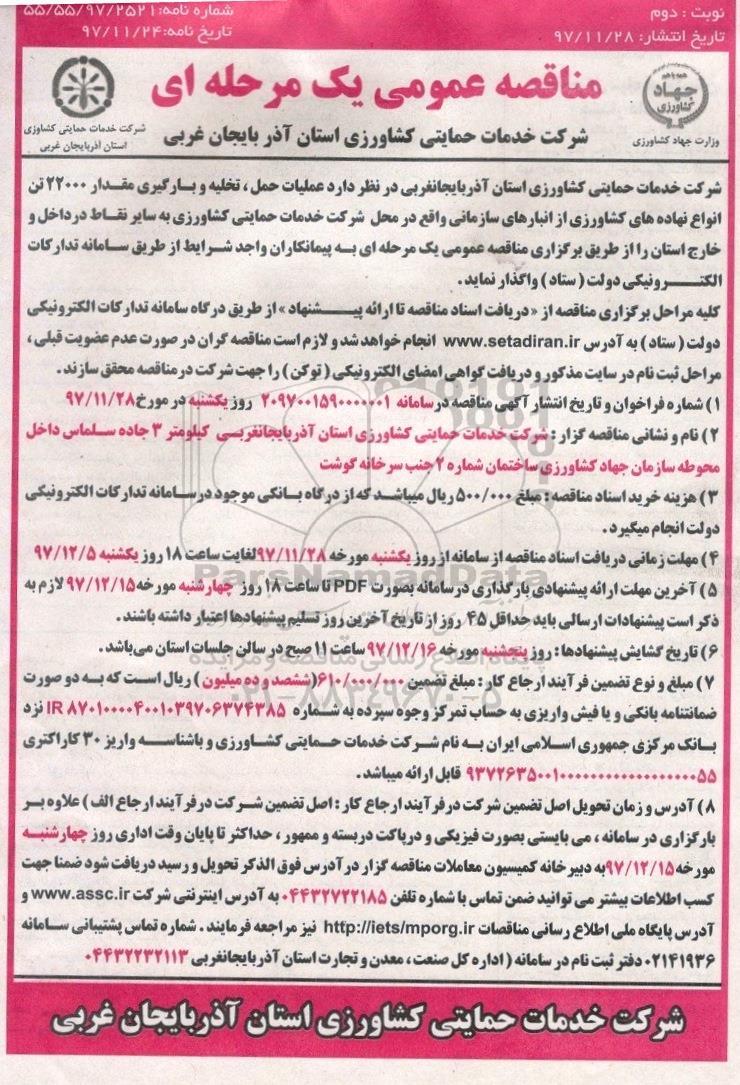 نوبت : دوم
تاریخ انتشار: ۹۷/۱۱/۲۸
شماره نامه:۵۵/۵۵/۹۷/۲۵۲۱
تاریخ نامه:۹۷/۱۱/۲۴
همه با هم
جهاد
کشاورزی
وزارت جهاد کشاورزی
مناقصه عمومی یک مرحله ای
شرکت خدمات حمایتی کشاورزی استان آذربایجان غربی
شرکت خدمات حمایتی کشاورزی
استان آذربایجان غربی
شرکت خدمات حمایتی کشاورزی استان آذربایجانغربی در نظر دارد عملیات حمل ، تخلیه و بارگیری مقدار ۲۲۰۰۰ تن
انواع نهاده های کشاورزی از انبارهای سازمانی واقع در محل شرکت خدمات حمایتی کشاورزی به سایر نقاط در داخل و
خارج استان را از طریق برگزاری مناقصه عمومی یک مرحله ای به پیمانکاران واجد شرایط از طریق سامانه تدارکات
الکترونیکی دولت ( ستاد ) واگذار نماید .
کلیه مراحل برگزاری مناقصه از « دریافت اسناد مناقصه تا ارائه پیشنهاد » از طریق درگاه سامانه تدارکات الکترونیکی
دولت ( ستاد ) به آدرس www.setadiran.ir انجام خواهد شد و لازم است مناقصه گران در صورت عدم عضویت قبلی ،
مراحل ثبت نام در سایت مذکور و دریافت گواهی امضای الکترونیکی ( توکن ) را جهت شرکت در مناقصه محقق سازند .
۱) شماره فراخوان و تاریخ انتشار آگهی مناقصه در سامانه ۲۰۹۷۰۰۱۵۹۰۰۰۰۰۰۱ روز یکشنبه در مورخ ۹۷/۱۱/۲۸
۲) نام و نشانی مناقصه گزار : شرکت خدمات حمایتی کشاورزی استان آذربایجانغربی کیلومتر ۳ جاده سلماس داخل
محوطه سازمان جهاد کشاورزی ساختمان شماره ۲ جنب سرخانه گوشت
۳) هزینه خرید اسناد مناقصه : مبلغ ۵۰۰/۰۰۰ ریال میباشد که از درگاه بانکی موجود در سامانه تدارکات الکترونیکی
دولت انجام میگیرد .
۴) مهلت زمانی دریافت اسناد مناقصه از سامانه از روز یکشنبه مورخه ۹۷/۱۱/۲۸ لغایت ساعت ۱۸ روز یکشنبه ۹۷/۱۲/۵
۵) آخرین مهلت ارائه پیشنهادی بارگذاری در سامانه بصورت PDF تا ساعت ۱۸ روز چهارشنبه مورخه ۹۷/۱۲/۱۵ لازم به
ذکر است پیشنهادات ارسالی باید حداقل ۴۵ روز از تاریخ آخرین روز تسلیم پیشنهادها اعتبار داشته باشند .
۶) تاریخ گشایش پیشنهادها : روز پنجشنبه مورخه ۹۷/۱۲/۱۶ ساعت ۱۱ صبح در سالن جلسات استان می‌باشد .
۷) مبلغ و نوع تضمین فرآیند ارجاع کار : مبلغ تضمین ۶۱۰/۰۰۰/۰۰۰(ششصد و ده میلیون ) ریال است که به دو صورت
ضمانتنامه بانکی و یا فیش واریزی به حساب تمرکز وجوه سپرده به شماره IR ۸۷۰۱۰۰۰۰۴۰۰۱۰۳۹۷۰۶۳۷۴۳۸۵ نزد
بانک مرکزی جمهوری اسلامی ایران به نام شرکت خدمات حمایتی کشاورزی و باشناسه واریز ۳۰ کاراکتری
۹۳۷۲۶۳۵۰۰۱۰۰۰۰۰۰۰۰۰۰۰۰۰۰۰۰۰۰۵۵ قابل ارائه میباشد .
۸) آدرس و زمان تحویل اصل تضمین شرکت در فرآیند ارجاع کار : اصل تضمین شرکت در فرآیند ارجاع الف ) علاوه بر
بارگزاری در سامانه ، می بایستی بصورت فیزیکی و در پاکت دربسته و ممهور ، حداکثر تا پایان وقت اداری روز چهارشنبه
مورخه ۹۷/۱۲/۱۵ به دبیرخانه کمیسیون معاملات مناقصه گزار در آدرس فوق الذکر تحویل و رسید دریافت شود ضمنا جهت
کسب اطلاعات بیشتر می توانید ضمن تماس با شماره تلفن ۰۴۴۳۲۷۲۲۱۸۵ به آدرس اینترنتی شرکت www.assc.ir و
آدرس پایگاه ملی اطلاع رسانی مناقصات http://iets/mporg.ir نیز مراجعه فرمایند . شماره تماس پشتیبانی سامانه
۰۲۱۴۱۹۳۶ دفتر ثبت نام در سامانه ( اداره کل صنعت ، معدن و تجارت استان آذربایجانغربی ۰۴۴۳۲۲۳۲۱۱۳
شرکت خدمات حمایتی کشاورزی استان آذربایجان غربی
ParsNamadData
پایگاه اطلاع رسانی مناقصه و مزایده
۰۲۱-۸۸۳۴۹۶۷۰-۵